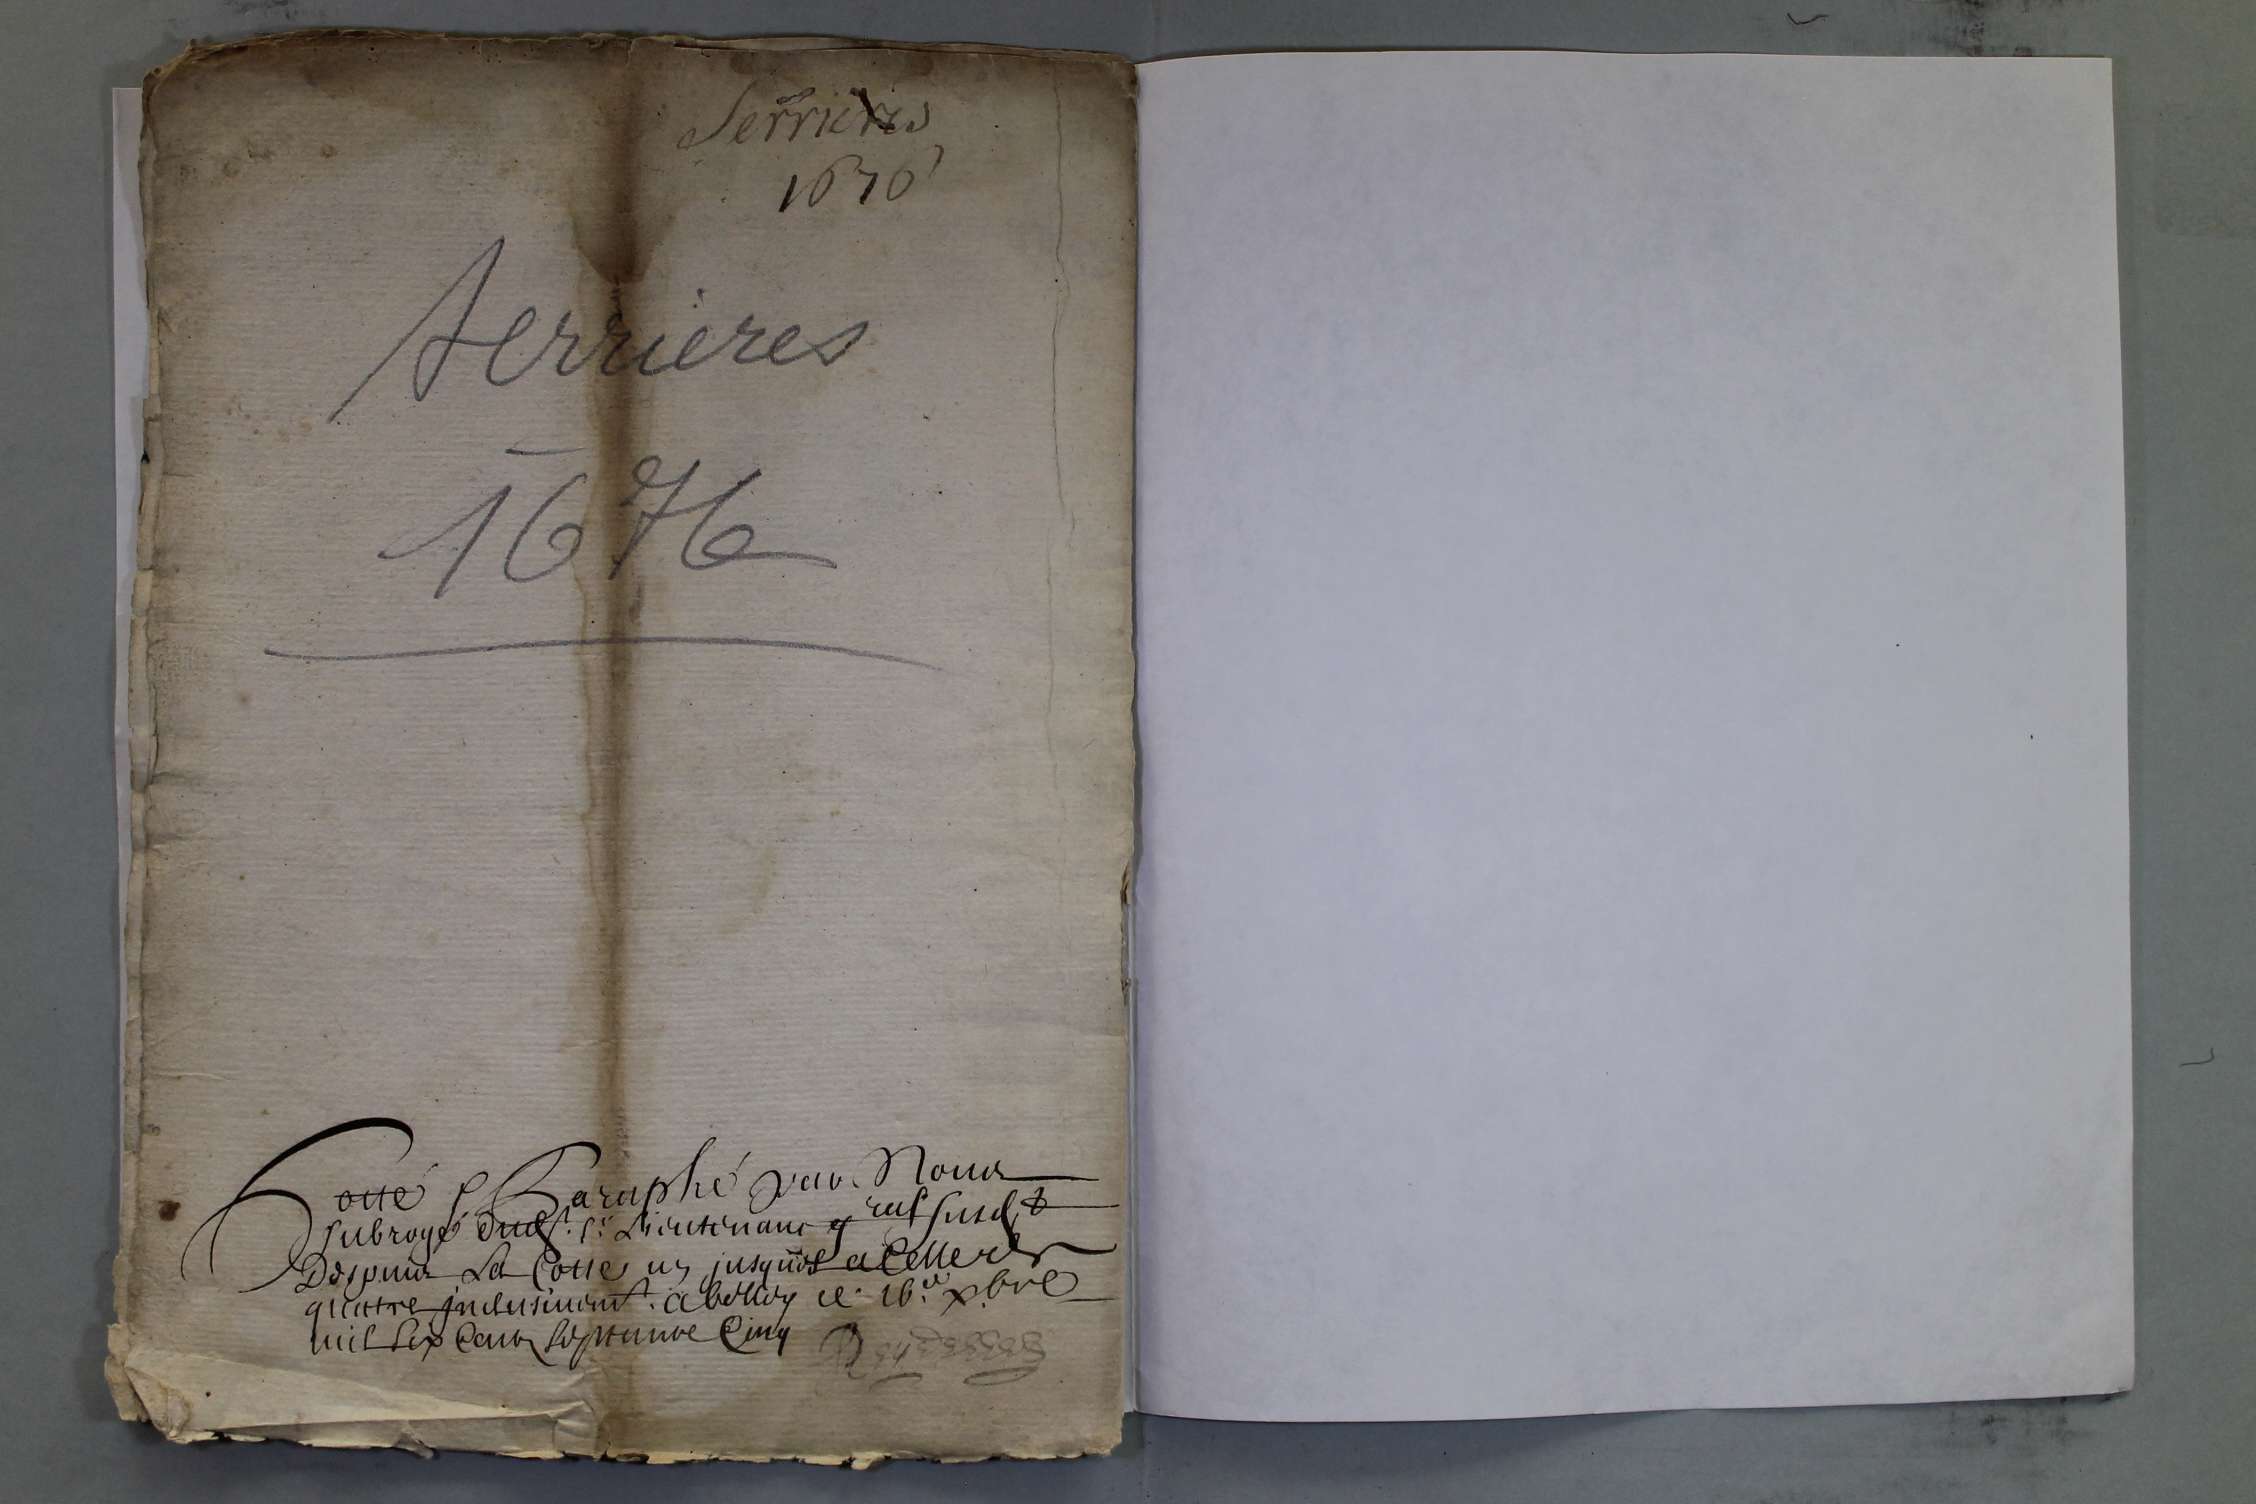 Serrieres
1676
Serrieres
1676
Cotté & Paraphé par Nous
subrogé dud.t Sr Lieutenant g ral susd.t
Depuis La Cotte un jusques a Celle de
quatre inclusivem.t a belley le 16.e xbre
mil six Cens septante Cinq